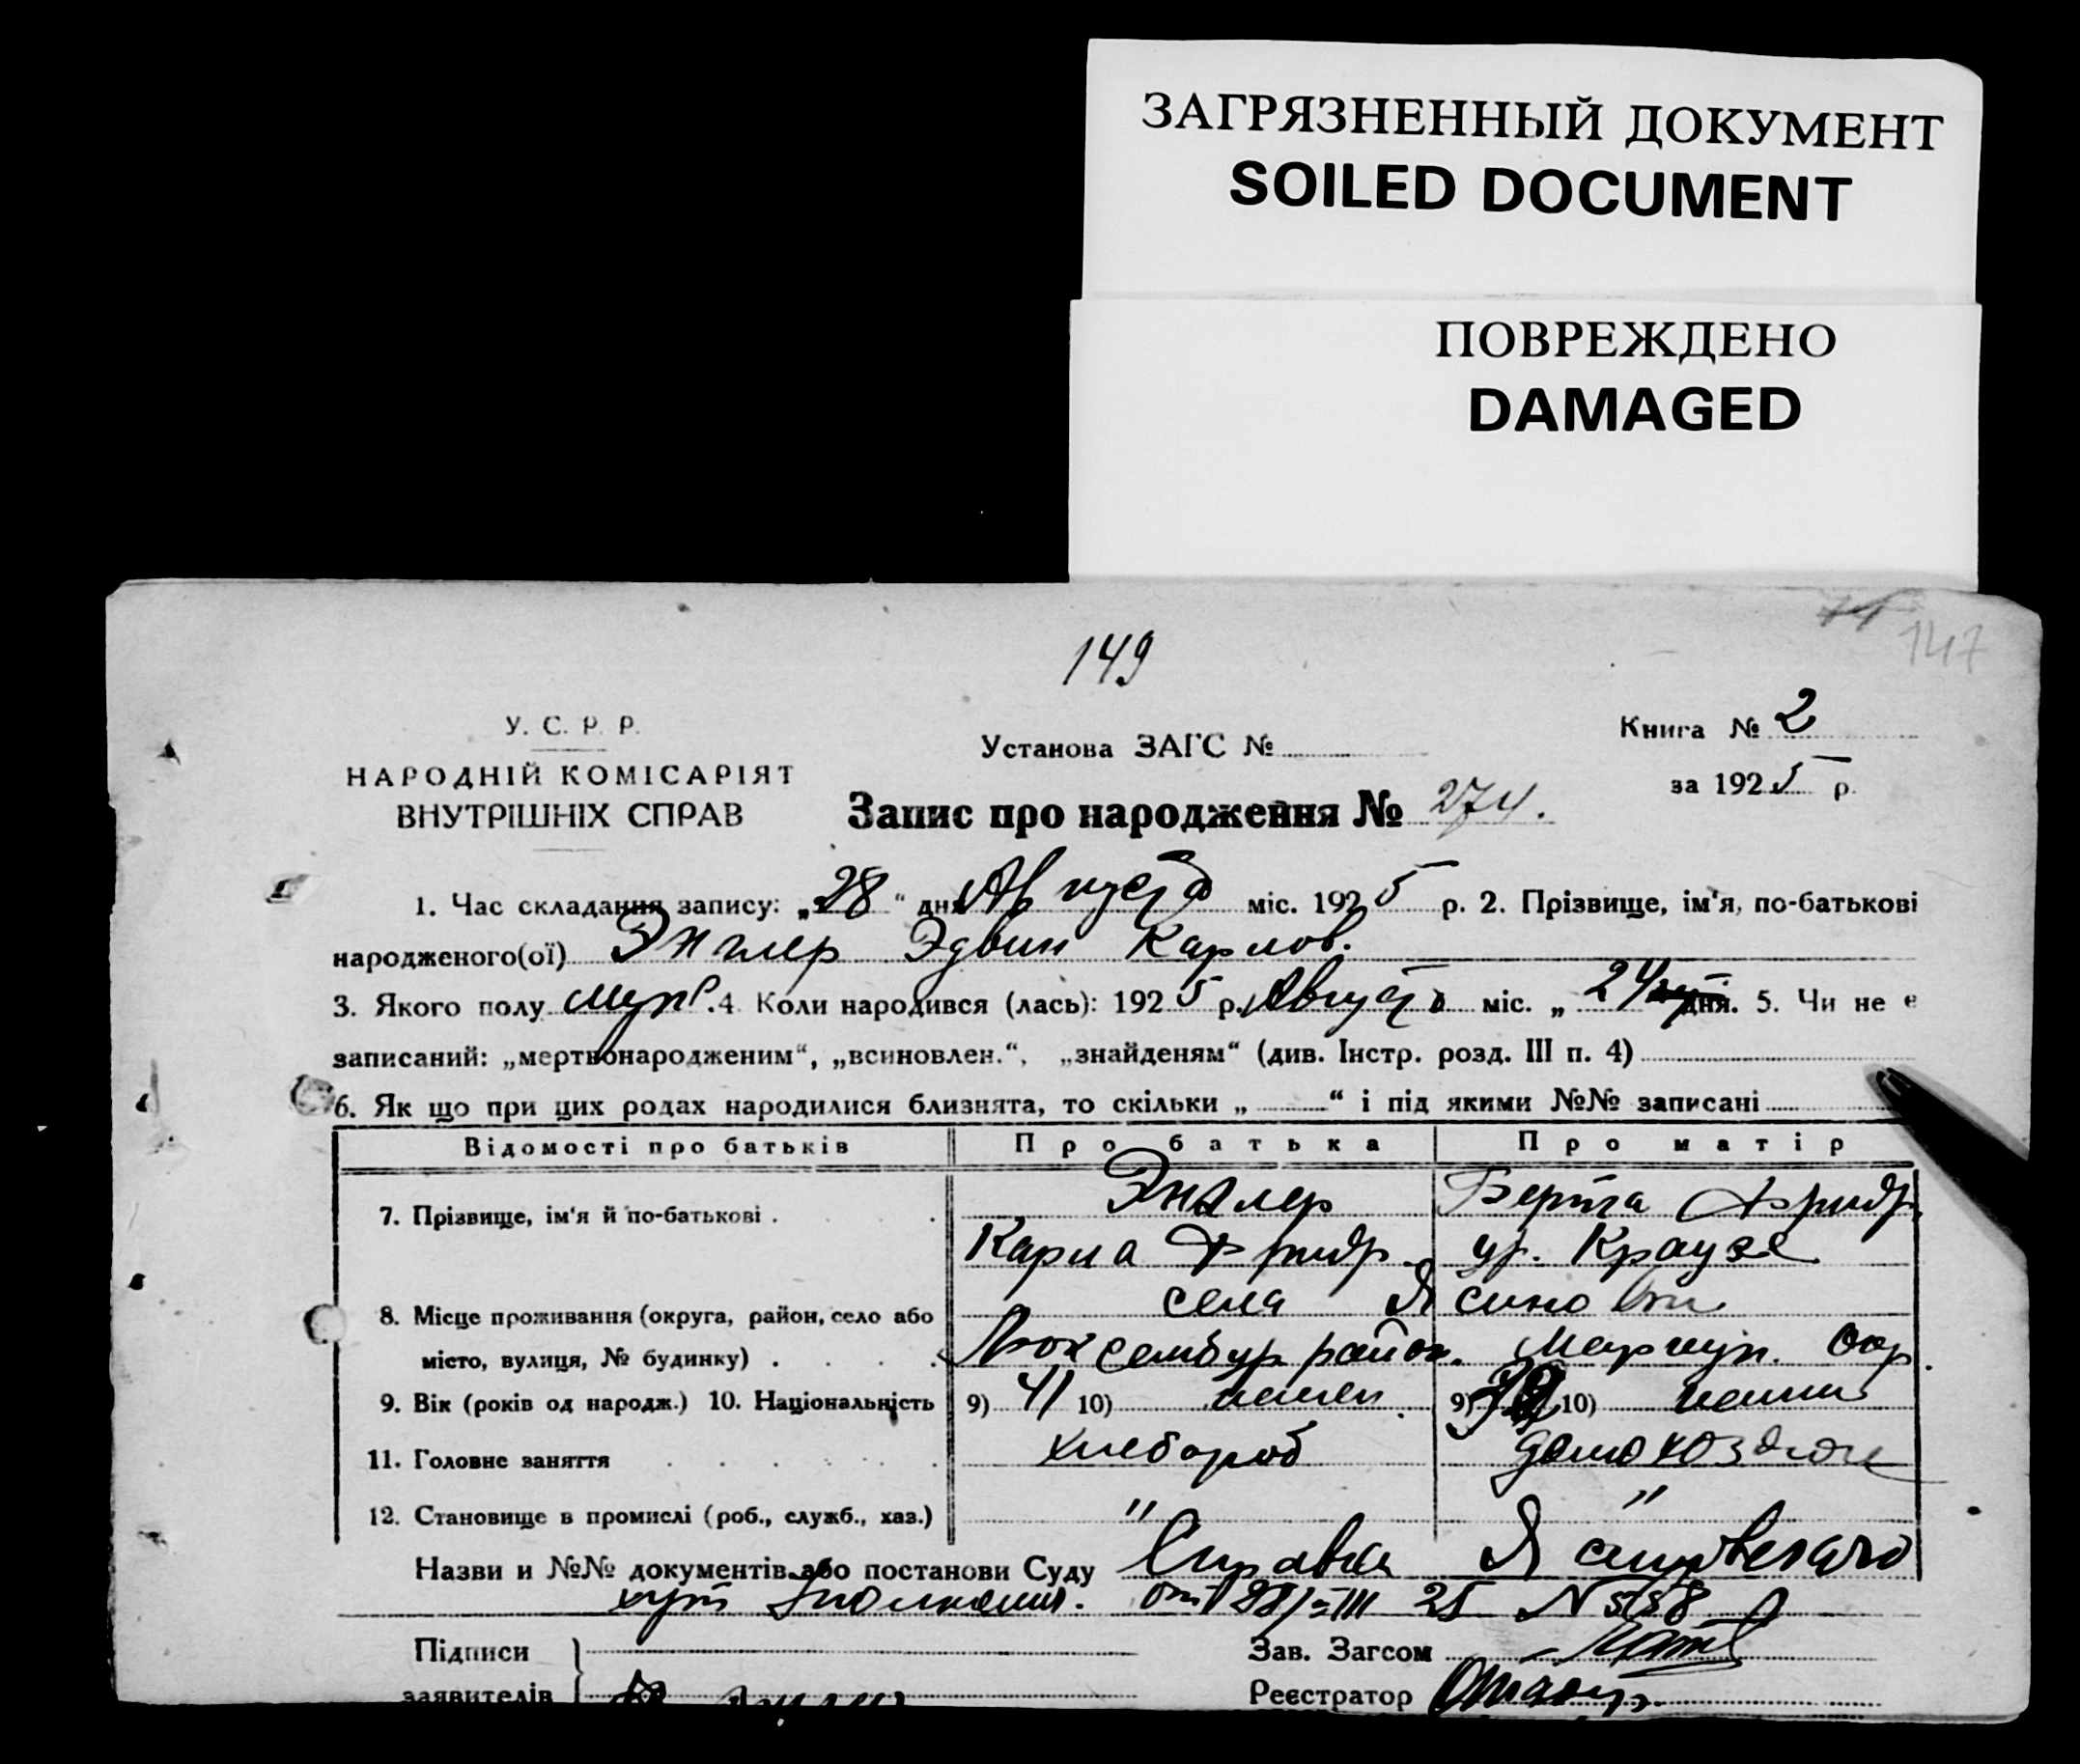 ЗАГРЯЗНЕННЫЙ ДОКУМЕНТ
SOILED DOCUMENT
ПОВРЕЖДЕНО
DAMAGED
147
149
У. С. Р. Р.
НАРОДНІЙ КОМІСАРІЯТ
ВНУТРІШНІХ СПРАВ
Установа ЗАГС №
Книга № 2
за 1925 р.
Запис про народження № 274.
1. Час складання запису: „28“ дня Августа міс. 1925 р. 2. Прізвище, ім'я, по-батькові
народженого(ої) Энглер Эдвин Карлов.
3. Якого полу муж. 4. Коли народився (лась): 1925 р. Августа міс. „24 дня. 5. Чи не є
записаний: „мертвонародженим“, „всиновлен.“, „знайденям“ (див. Інстр. розд. III п. 4)
6. Як що при цих родах народилися близнята, то скільки „ “ і під якими №№ записані
Відомості про батьків Про батька Про матір
7. Прізвище, ім'я й по-батькові . Энглер Берта Фридр.
Карла Фридр. ур. Краузе
8. Місце проживання (округа, район, село або села Ясиновки
місто, вулиця, № будинку) . Люксембур. район. Мариуп. Окр.
9. Вік (років од народж.) 10. Національність 9) 41 10) немец 9) 10) немк
11. Головне заняття хлебороб домохоз
12. Становище в промислі (роб., служб., хаз.) " "
Назви и №№ документів або постанови Суду Справка
от 28/VIII 25 N
Підписи
заявителів
Зав. Загсом
Реєстратор